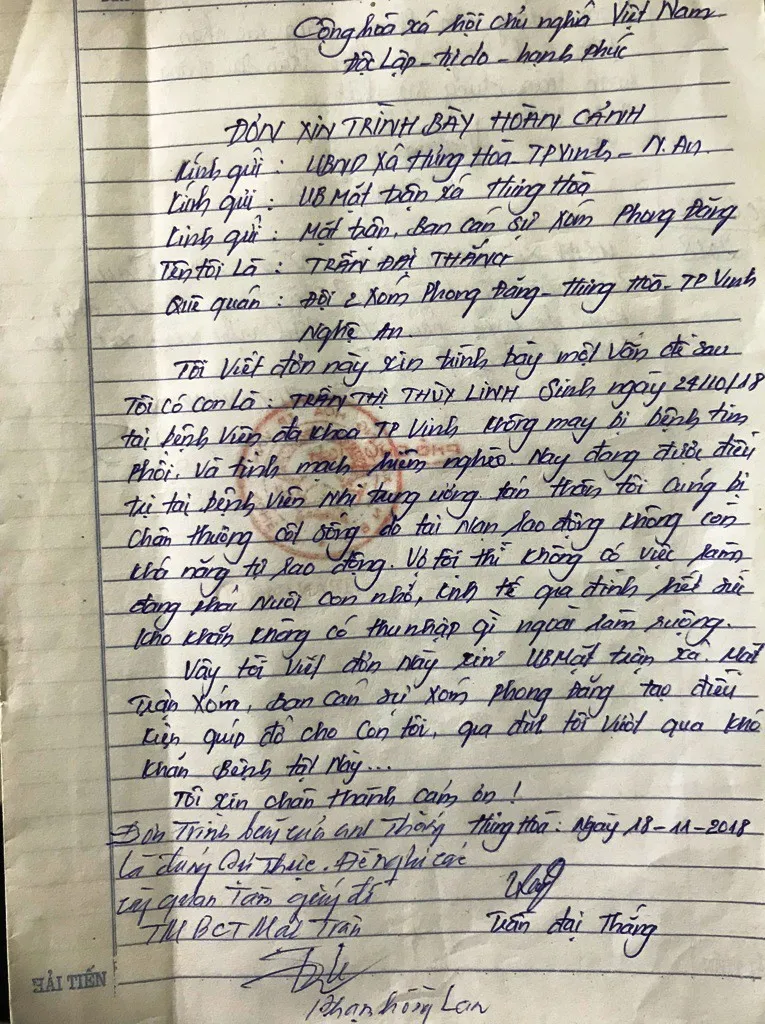 Cộng hoà xã hội chủ nghĩa Việt Nam
Độc Lập - tự do - hạnh phúc
ĐƠN XIN TRÌNH BÀY HOÀN CẢNH
Kính gửi : UBND Xã Hưng Hoà TP Vinh - N. An.
Kính gửi : UB Mặt trận xã Hưng Hoà
Kính gửi : Mặt trận, Ban cán sự xóm Phong Đăng
Tên tôi là : TRẦN ĐẠI THẮNG
Quê quán : Đội 2 Xóm Phong Đăng - Hưng Hoà - TP Vinh
Nghệ An.
Tôi Viết đơn này xin trình bày một Vấn đề sau
Tôi có con là : TRẦN THỊ THÙY LINH Sinh ngày 24/10/18
tại bệnh Viện đa khoa TP Vinh không may bị bệnh tim
phổi, và tĩnh mạch hiểm nghèo. Nay đang được điều
trị tại bệnh viện Nhi trung ương. bản thân tôi cũng bị
Chấn thương cột sống do tai Nạn Lao động không còn
khả năng tự Lao động. Vợ tôi thì không có việc làm
đang phải nuôi con nhỏ, kinh tế gia đình hết sức
khó khăn không có thu nhập gì ngoài làm ruộng.
Vậy tôi viết đơn này xin UBMặt trận xã. Mặt
Trận xóm, Ban cán sự xóm Phong Đăng tạo điều
kiện giúp đỡ cho con tôi, gia đình tôi vượt qua khó
khăn Bệnh tật này...
Tôi xin chân thành cảm ơn !
Đơn Trình bày của anh Thắng Hưng Hoà : Ngày 18-11-2018
Là đúng Sự thực. Đề nghị các
cấp quan Tâm giúp đỡ
TM BCT Mặt Trận
Trần đại Thắng
Phan Hồng Lan
HẢI TIẾN